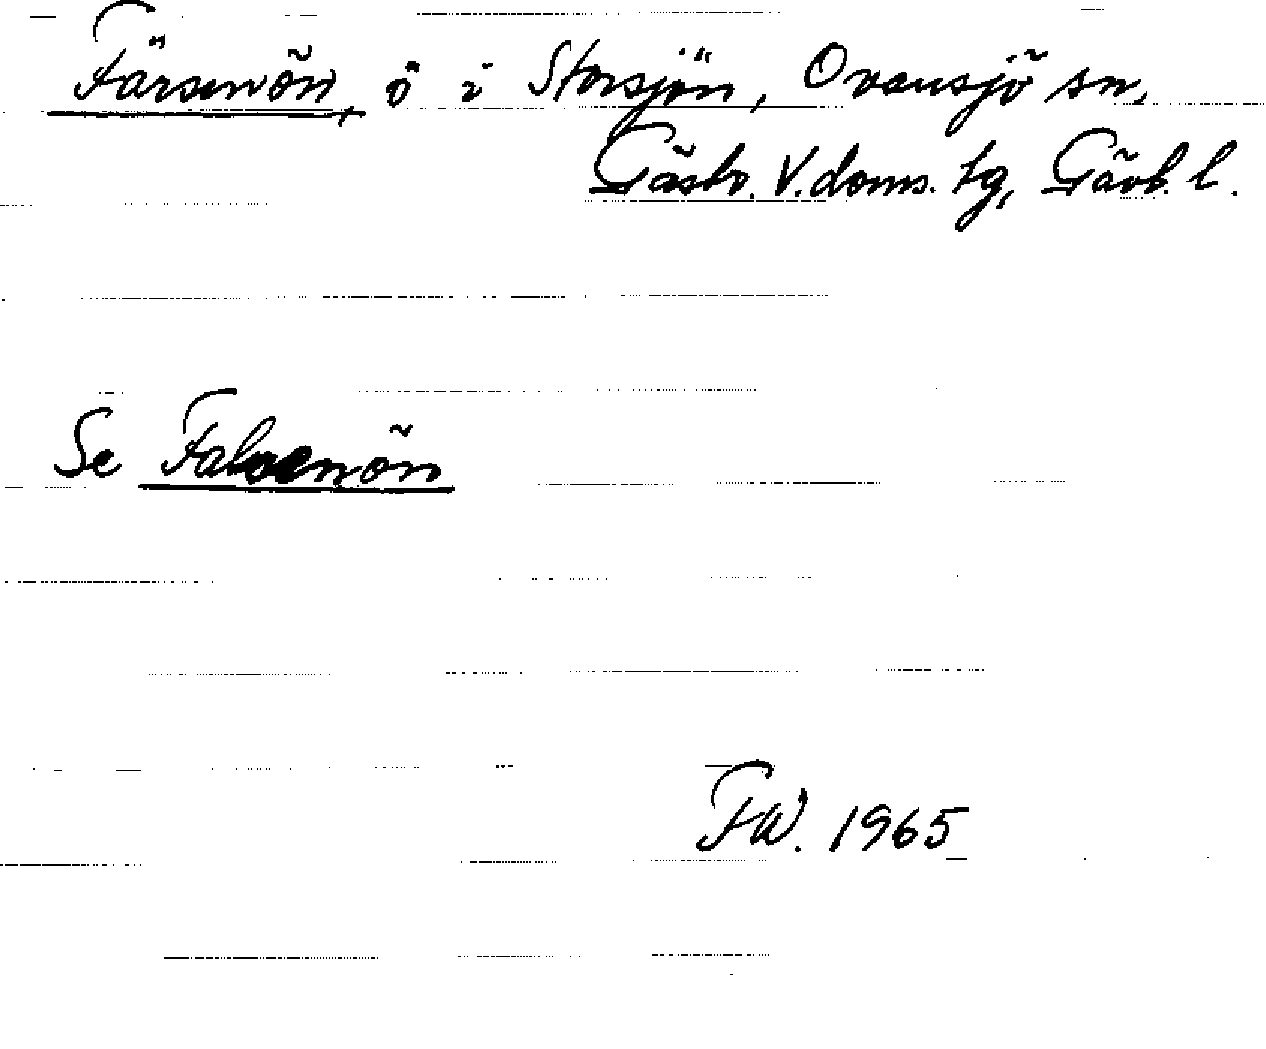 Färsenön, ö i Storsjön, Ovansjö sn,
Gästr. V. doms. tg, Gävb. l.
Se Falsenön
FW. 1965